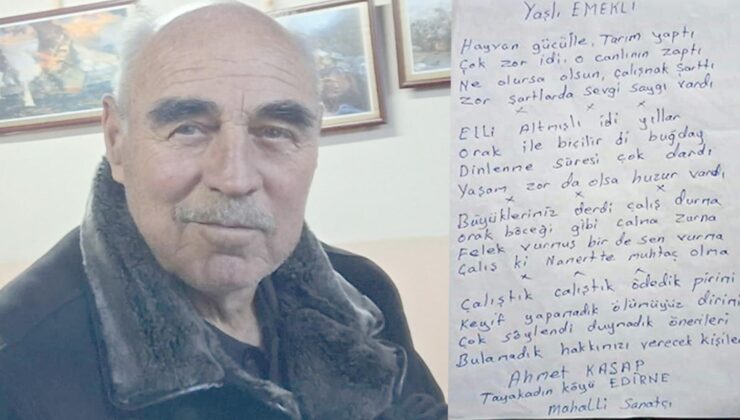 Yaşlı EMEKLİ
Hayvan gücülle, Tarım yaptı
Çok zor idi, o canlının zaptı
Ne olursa olsun, çalışnak şarttı
Zor şartlarda sevgi saygı vardı
x x x
Elli Altmışlı idi yıllar
Orak ile biçilir di buğday
Dinlenme süresi çok dardı
Yaşam zor da olsa huzur vardı
x x x
Büyükleriniz derdi çalış durma
Orak böceği gibi çalma zurna
Felek vurmuş bir de sen vurma
Çalış ki Namertte muhtaç olma
Çalıştık çalıştık ödedik pirini
Keyif yapamadık ölümüyüz dirini
Çok söylendi duymadık önerileri
Bulamadık hakkımızı verecek kişiler
Ahmet KASAP
Tayakadın köyü EDİRNE
Mahalli Sanatçı